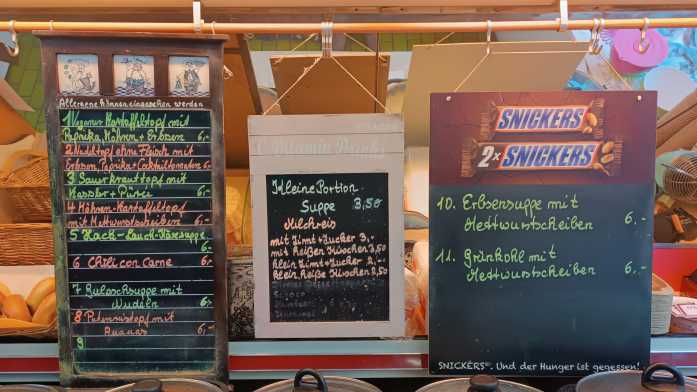 Allergene können eingesehen werden
1 Veganer Kartoffeltopf mit
Paprika, Möhren + Erbsen 6,-
2 Nudeltopf ohne Fleisch mit
Erbsen, Paprika + Cocktiltomaten 6,-
3 Sauerkrauttopf mit
Kassler + Püree 6,-
4 Möhren-Kartoffeltopf
mit Mettwurstscheiben 6,-
5 Hack-Lauch-Käsesuppe
6,-
6 Chili con Carne 6,-
7 Gulaschsuppe mit
Nudeln 6,-
8 Putenreistopf mit
Ananas 6,-
9
Vitamin Drinks
Kleine Portion
Suppe 3,50
Milchreis
mit Zimt + Zucker 3,-
mit heißen Kirschen 3,50
klein Zimt + Zucker 2,-
klein heiße Kirschen 2,50
SNICKERS
2x SNICKERS
10. Erbsensuppe mit
Mettwurstscheiben 6,-
11. Grünkohl mit
Mettwurstscheiben 6,-
SNICKERS®. Und der Hunger ist gegessen!